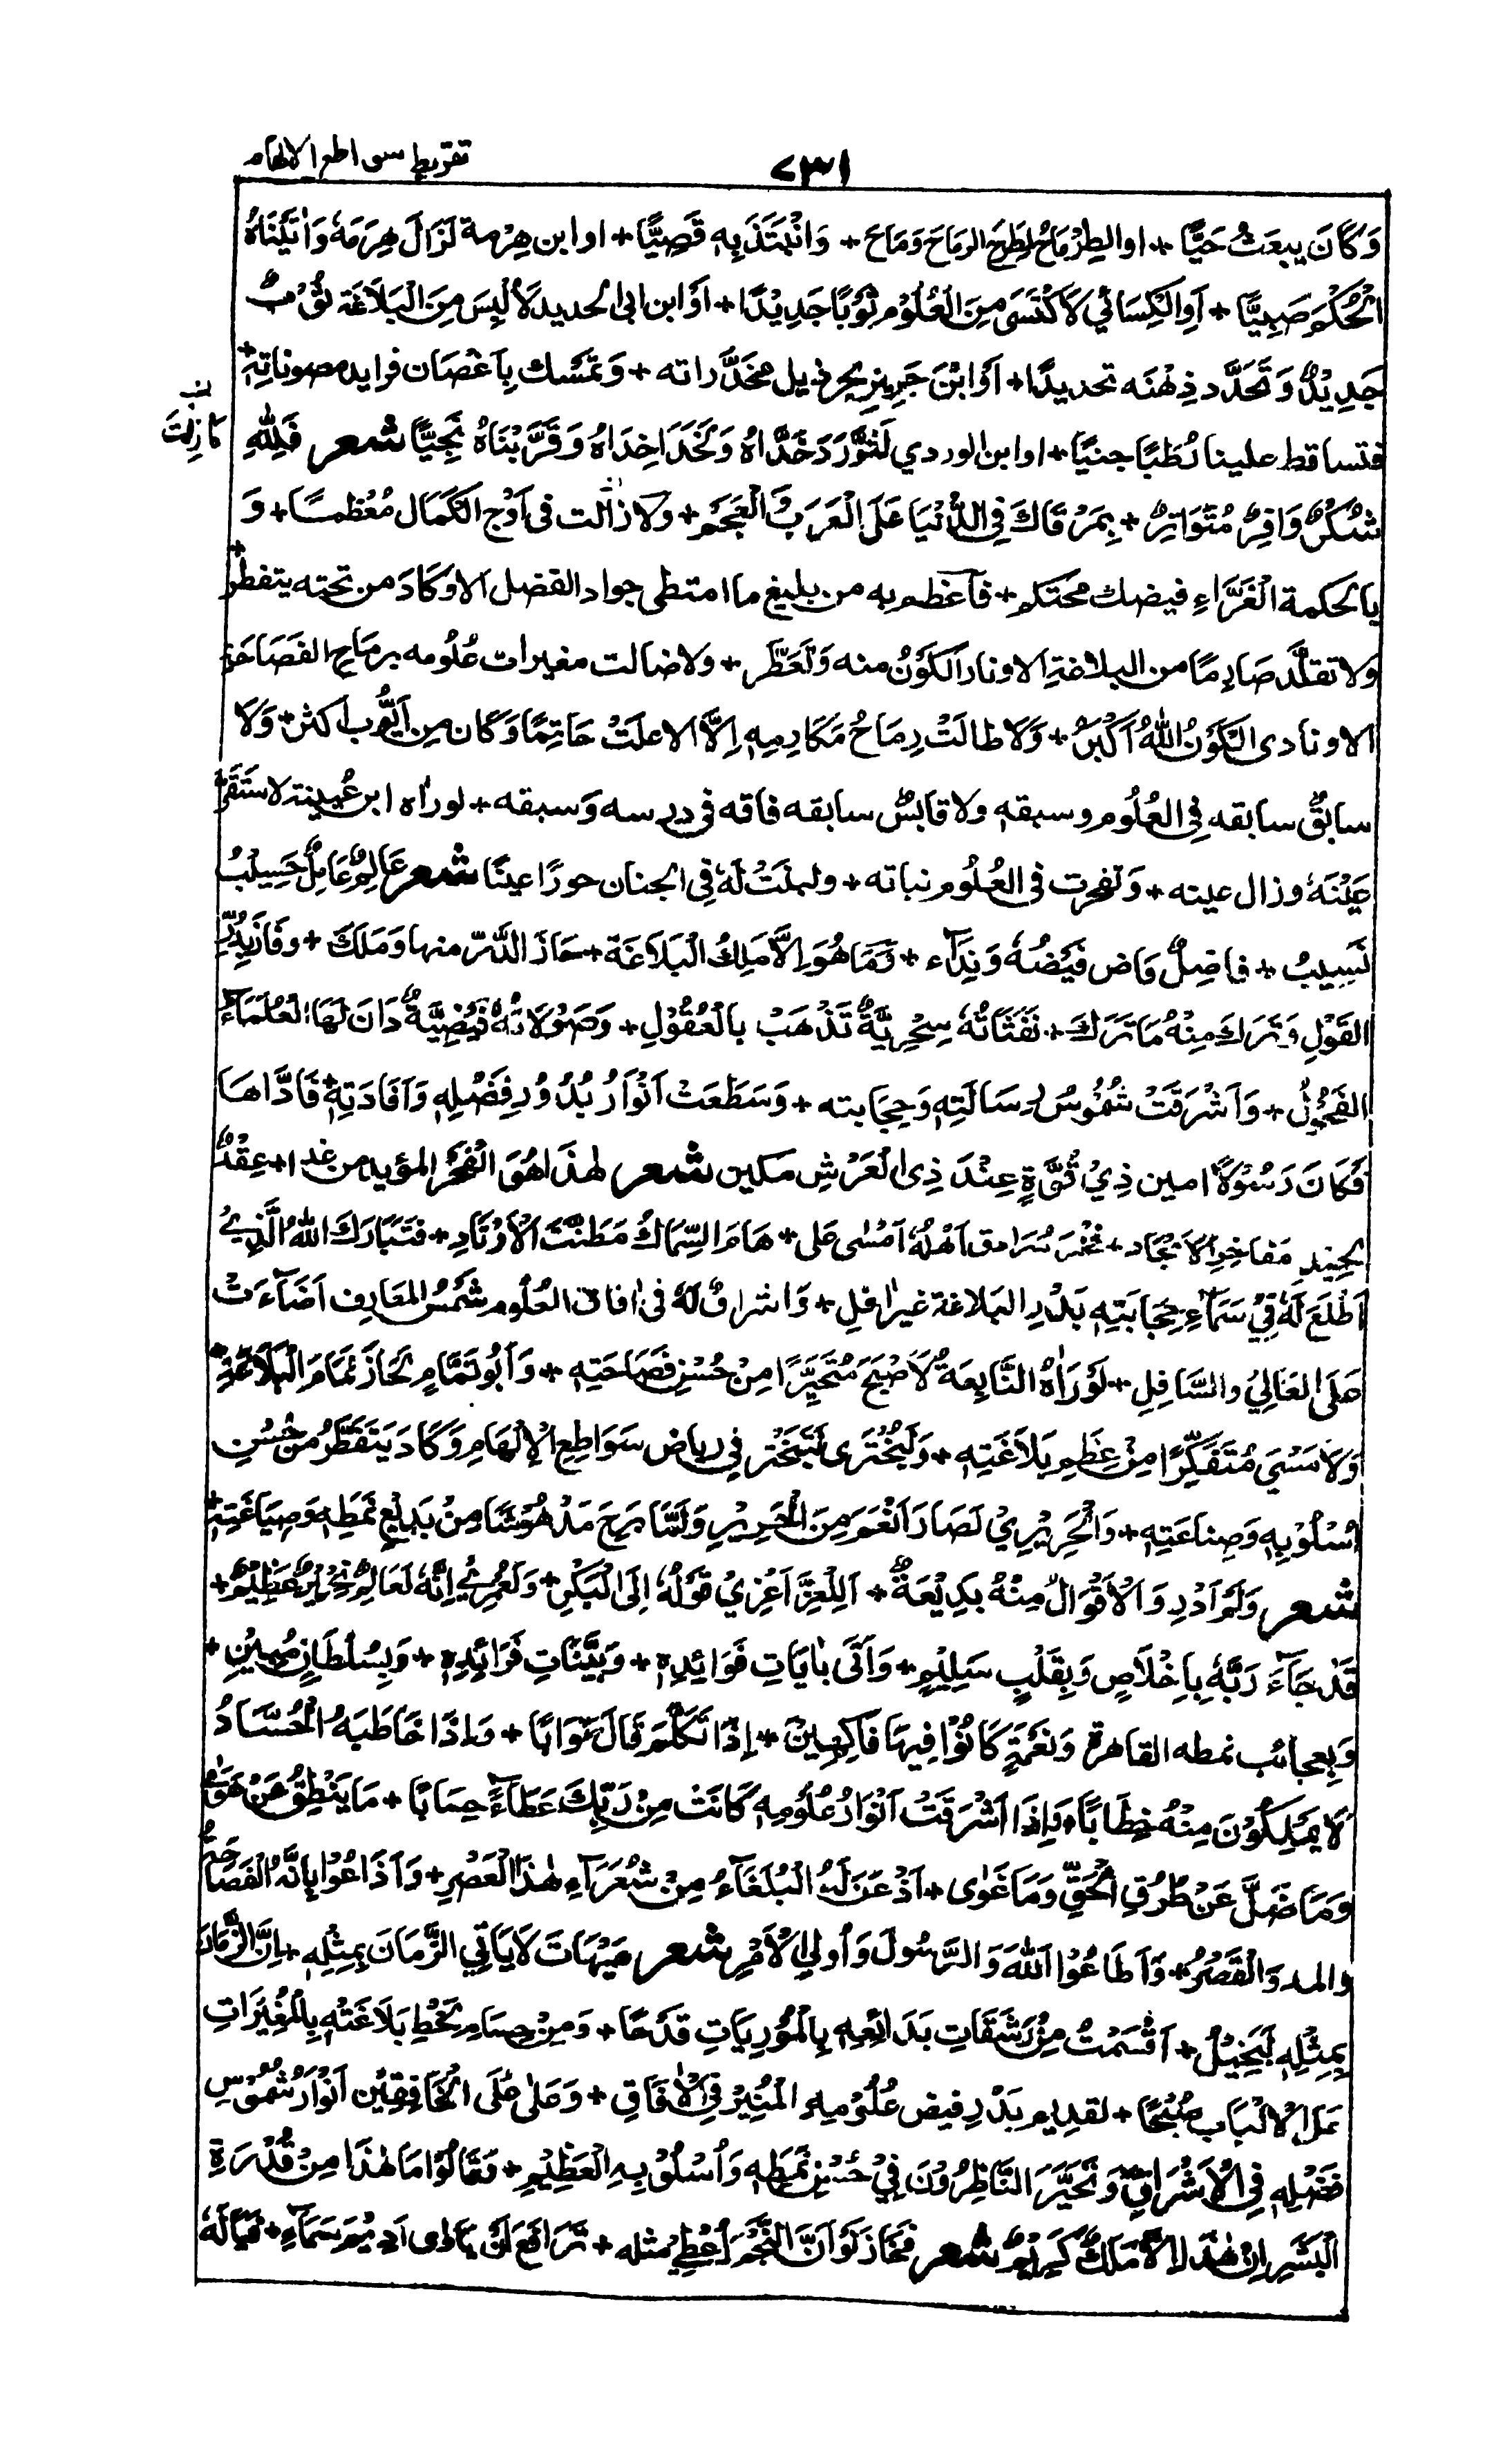 تقريط سواطع الالهام
٧٣١
وَكَانَ يبعَثُ حَيًّا + اوالطِرْمَاحُ لطَرَحَ الرمَاحَ وَمَاحَ + وَانْتَبَذَ بِهٖ قَصِيًّا + او ابن هِرْمة لَزَالَ هِرَمَهٗ وَاٰتَيْنَاهُ
الْحُكْمَ صَبِيًّا + اَوِ الْكِسَائي لَاكْتَسَى مِنَ الْعُلُوْمِ ثَوْبًا جَدِيْدًا + اَوْ ابن ابى الحديد لَاُلبِسَ مِنَ الْبَلَاغَةِ ثَوْبٌ
جَدِيْدٌ وَتَحَدَّد ذِهْنَه تحديدًا + اَوْ ابْنَ جَرِيْرٍ يجر ذيل مخدَّراته + وَتمَسَّك بِاَغْصَان فرايد مصوناتِهٖ +
فتساقط علينا رُطَبًا جنيًا + اوا بن الوردي لَتوَّرَدَ خَدَّاهُ وَ اخِدَاهُ وَقَرَّبْنَاهُ نَجِيًّا شعر فَلِلّٰهِ
شُكْرٌ وَافِرٌ مُتَوَاتِرٌ + بِمَرْقَاكَ فِي الدُّنْيَا عَلَى الْعَرَبِ وَالْعَجَم + ولا زالت فى اَوْج الْكَمَال مُعَظمًا + وَ
مازلت
يالحكمة الْغَرَّاءِ فيضك محتكم + فاَعْظم به من بليغ ما امتطى جواد الفضل الاوكَادَ من تحته يتفطر +
ولا تقلَّد صَارِمًا من البلاغةِ الا ونادَ الكَوْنُ منه وَتَعَطَّر + ولا ضالت مغيرات عُلُومه برمَاح الفَصَاحَةِ
الا ونادى الكَوْنُ اللّٰهُ اَكْبَرُ + وَلَا طالَتْ رِمَاحُ مَكَارِمِهٖ اِلَّا الاعلَتْ حَاتِمًا وَكان مِن اَيُّوب اكثر + وَلَا
سابقٌ سابقه فِي العُلُوم وسبقهٖ ولا قابسٌ سابقه فاقه فى درسه وَسبقه + لوراٰه ابن عُيينة لاستَقَرَّ
عَيْنَهٗ وزال عينه + وَتفجرت فى العُلُوم نباته + ولبلَتْ لَهٗ فِي الجنان حورًا عينًا شعر عَالِمٌ عَامِلٌ حَسِيبٌ
نَسِيبٌ + فاضِلٌ فاض فَيْضُهٗ وَنِدَاء + فَمَا هُوَ اِلَّا مَلِكُ الْبَلَاغَة + حَازَ الدُّرّ منها وَمَلَكَ + وفَازَ بِدُرِّ
القَوْلِ وَتَرَكَ مِنْهُ مَا تَرَكَ + نَفَثَاتُهٗ سِحْرِيَّةٌ تَذْهَبْ بالْعُقُوْلِ + وَصَوْلَاتُهٗ فَيْضِيَّةٌ دَانَ لَهَا الْعُلَمَاءُ
الفَحُوْلُ + وَاَشْرَقَتْ شُمُوْسُ رِسَالَتِهٖ وَحِجَابته + وَسَطَعَتْ اَنْوَارُ بُدُوْرِ فَضْلِهٖ وَاَفَادَتِهٖ فَادَّاهَا
فَكَانَ رَسُوْلًا امين ذِيْ قُوَّةٍ عِنْدَ ذِى الْعَرْشِ مَكين شعر هٰذَا هُوَ الْفَخْرُ المؤيد من غدا + عِقْدٌ
لجِيْدِ مَفَاخِرِ الْاَمْجَاد + سُرَادق اَهْلُهٗ اَمْسٰى عَلى + هَامَ السِّمَاكُ مَطْنَبَ الْاَوْتَادِ + فَتَبَارَكَ اللّٰهُ الَّذِيْ
اَطْلَعَ لَهٗ فِيْ سَمَاءِ حِجَابَتِهٖ بَدْرِ البَلَاغة غير اٰفلِ + وَاشراقٌ لَهٗ فى اٰفاق العُلُوم شَمْسُ المَعَارِف اَضَاءَتْ
عَلَى العَالِيْ وَالسَّافِلِ + لَوْ رَاٰهُ النَّابِغَةُ لَاَصْبَحَ مُتَحَيِّرًا مِنْ حُسْنِ فَصَاحَتِهٖ + وَاَبُو تَمَّامٍ لَحَازَ تَمَامَ الْبَلَاغَةِ +
وَلَاَمْسَى مُتَفَكِّرًا مِنْ عِظَمِ بَلَاغَتِهٖ + وَالبُحْتَرى لَتَبَخْتَر فِي رياض سَوَاطِعِ الْاِلْهَامِ وَكَادَ يَتَفَطَّرُ مِنْ حُسْنِ
اُسْلُوْبِهٖ وَصِنَاعَتِهٖ + وَالْحَرِيْرِيْ لَصَارَ اَنْعَمَ مِنَ الْحَرِيْرِ وَلَمَّا بَرِحَ مَدْهُوْشًا مِنْ بَدِيْعِ نَمَطِهٖ وَصِيَاغَتِهٖ +
شعر وَلَمْ اَدْرِ وَالْاَقْوَالُ مِنْهُ بَدِيْعَةٌ + اَلِلْعِزِّ اَعْزِيْ قَوْلُهٗ اِلَى الْبَكْرِ + وَلَعُمْرِيْ اِنَّهٗ لَعَالِمٌ نِحْرِيْرٌ عَظِيْمٌ +
قَدْ جَآءَ رَبَّهٗ بِاِخْلَاصٍ وَبِقَلْبٍ سَلِيْمٍ + وَاَتَى باٰيَاتِ فَوَائِدِهٖ + وَبَيِّنَاتِ فَرَائِدِهٖ + وَبِسُلْطَانٍ مُبِيْنٍ +
وَبِعجائب نمطه القاهرة وَنَعْمَةٍ كَانُوْا فِيْهَا فَاكِهِيْنَ + اِذَا تَكَلَّمَ قَالَ صَوَابًا + وَاِذَا خَاطَبَهُ الْحُسَّادُ
لَا يَمْلِكُوْنَ مِنْهُ خِطَابًا + وَاِذَا اَشْرَقَتْ اَنْوَارُ عُلُوْمِهٖ كَانَتْ مِنْ رَبِّكَ عَطَآءً حِسَابًا + مَا يَنْطِقُ عَنْ هَوٰى
وَمَا ضَلَّ عَنْ طُرُقِ الْحَقِّ وَمَا غَوٰى + اَذْعَنَ لَهُ الْبُلَغَآءُ مِنْ شُعَرَآءِ هٰذَا الْعَصْرِ + وَاَذَاعُوْا بِاَنَّهُ الْفَصَاحَةُ
والمد وَالْقَصْرُ + وَاَطَاعُوْا اللّٰهَ وَالرَّسُوْلَ وَاُولِي الْاَمْرِ شعر هَيْهَاتَ لَا يَاتِي الزَّمَانَ بِمِثْلِهٖ + اِنَّ الزَّمَانَ
بِمِثْلِهٖ لَبَخِيْلٌ + اَقْسَمْتُ مِنْ رَشَقَاتِ بَدَائِعِهٖ بِالْمُوْرِيَاتِ قَدْحًا + وَمِنْ حِسَامِ بَلَاغَتِهٖ بِالْمُغِيْرَاتِ
عَلَى الْاَلْبَابِ صُبْحًا + لقد بَدْرِ فيض عُلُوْمِهِ الْمُنِيْرْ فِي الْاٰفَاقِ + وَعَلٰى عَلَى الْخَافِقِيْن اَنْوَارُ شُمُوْسِ
فَضْلِهٖ فِى الْاَشْرَاقِ وَتَحَيَّرَ النَّاظِرُوْنَ فِيْ حُسْنِ نَمَطِهٖ وَاُسْلُوْبِهِ الْعَظِيْمِ + وَقَالُوْا مَا هٰذَا مِنْ قُدْرَةِ
الْبَشَرِ اِنْ هٰذَا اِلَّا مَلَكٌ كَرِيْمٌ شعر فَحَازَ لَوْ اَنَّ النَّجْمَ اُعْطِيَ مثله + تَرَافَعَ اَنْ يَاوى اَدِيْمَ سَمَآءِ + فَيَالَهٗ